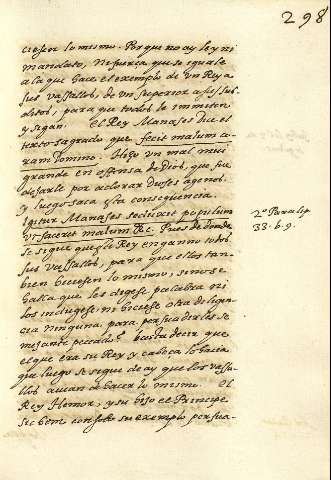 298
ciesen lo mismo. Porque no ay ley ni
mandato, ni fuerça que se iguale
a la que hace el exemplo de un Rey a
sus vassallos, de un superior a sus sub
ditos, para que todos le immiten
y sigan. El Rey Manases dice el
texto sagrado que fecit malum co
ram Domino. Hizo un mal mui
grande en offensa de Dios, que fue
dejarle por adorar dioses agenos.
y luego saca esta consequencia.
Igitur Manases seduxit populum
ut faceret malum &c. Pues de donde
se sigue que el Rey enganno todos
sus vassallos, para que ellos tan
bien hiciesen lo mismo, si no se
halla que les digese palabra ni
los indugese, ni hiciese otra diligen
cia ninguna para persuadirles se
mejante peccado? basta decir que
el que era su Rey y cabeça lo hacia
que luego se sigue de ay que los vasa
llos avian de hacer lo mismo. El
Rey Hemor, y su hijo el Principe
Sichem con solo su exemplo persua-
2º Paralip
33. b. 9.